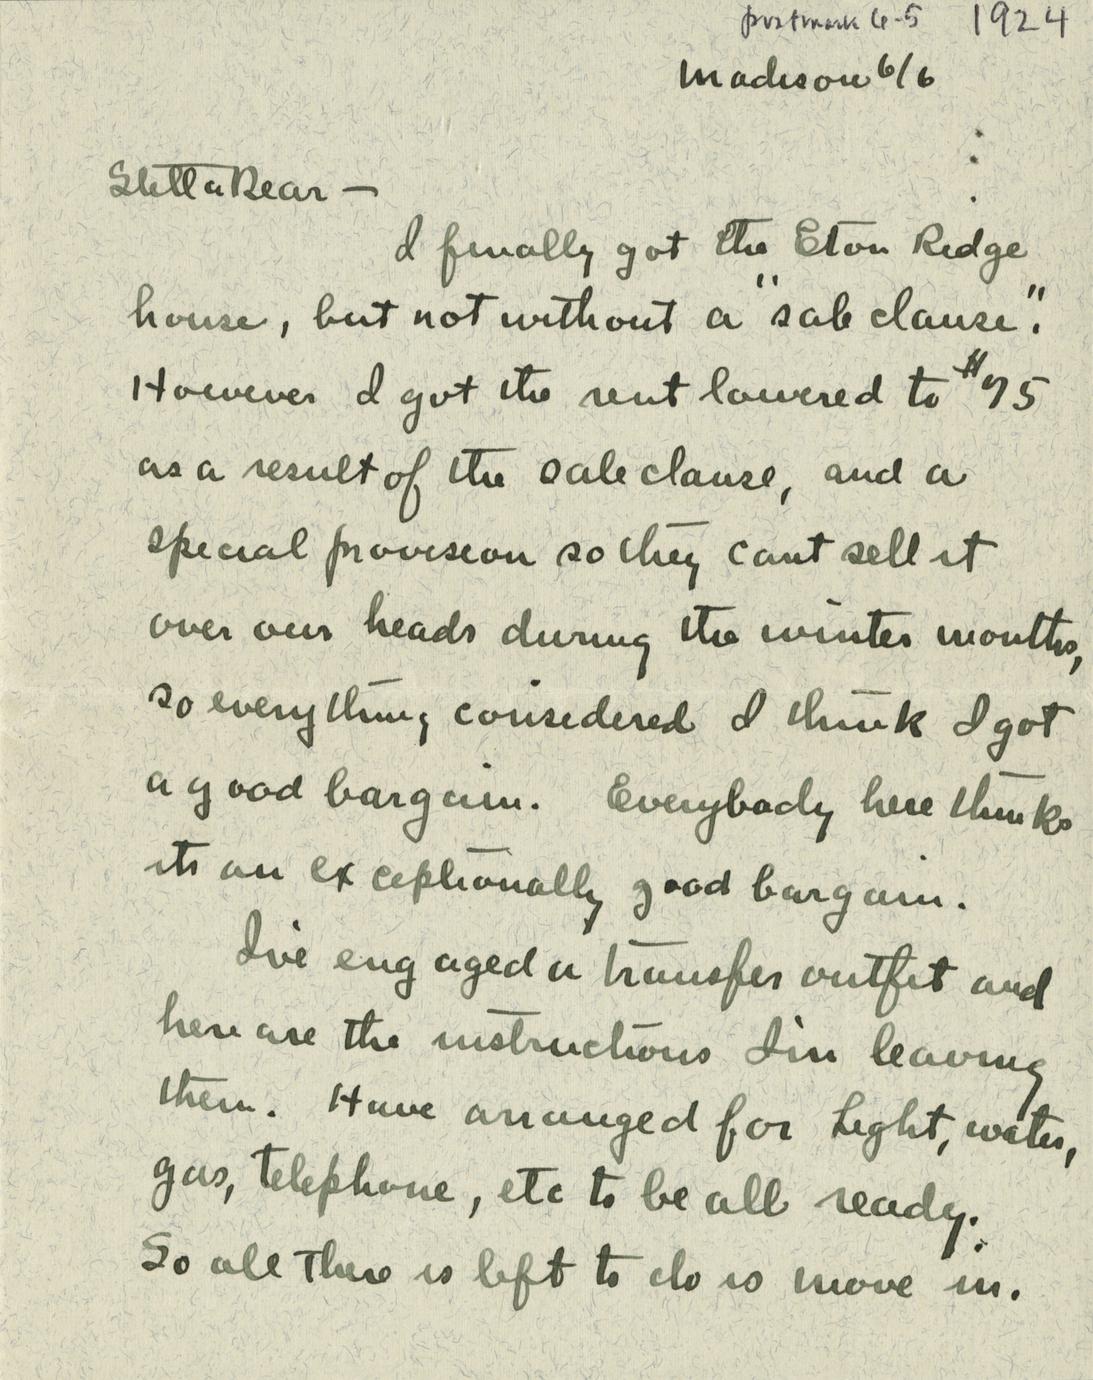 postmark 6-5 1924
Madison 6/6
Stella Bear —
I finally got the Eton Ridge
house, but not without a "sale clause".
However I got the rent lowered to $75
as a result of the sale clause, and a
special provision so they cant sell it
over our heads during the winter months,
so everything considered I think I got
a good bargain. Everybody here thinks
its an exceptionally good bargain.
I've engaged a transfer outfit and
here are the instructions I'm leaving
them. Have arranged for Light, water,
gas, telephone, etc to be all ready.
So all there is left to do is move in.